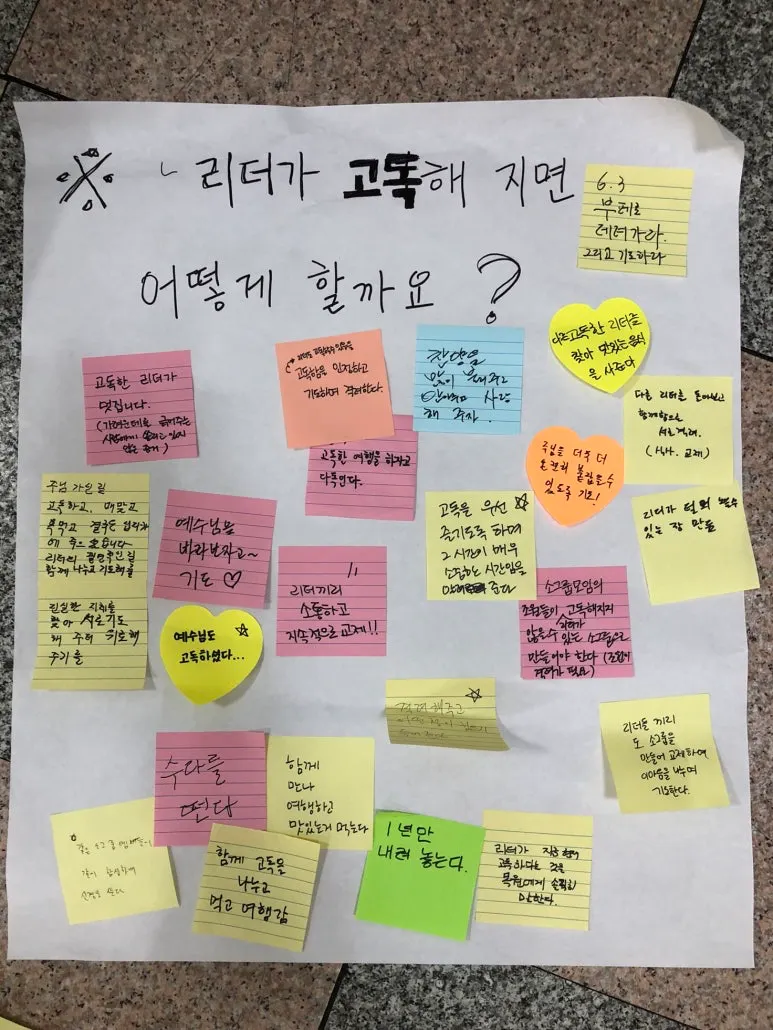 ※ 리더가 고독해 지면
어떻게 할까요?
6.3
부페로
데려가라.
그리고 기도하라
고독한 리더를
찾아 맛있는 음식
을 사준다
고독한 리더가
멋집니다.
고독함을 인지하고
기도하며 격려한다.
찬양을
많이 불러주고
안아주며 사랑
해 주자.
다른 리더를 돌아보고
함께함으로
서로격려.
(식사. 교제)
고독한 여행을 하자고
다독인다.
주님을 더욱 더
온전히 붙잡을수
있도록 기도!
주님 가신 길
고독하고, 매맞고
함께 나누고 기도해줌
진실한 지체를
찾아 서로기도
해 주며 위로해
주기를
예수님만
바라보자고~
기도 ♡
고독을 우선
즐기도록 하며
그 시간이 매우
소중하는 시간임을
준다
리더가 털어 놓을수
있는 장 만듦
리더끼리
소통하고
지속적으로 교제!!
소그룹모임의
조원들이 고독해지지
리더가
않을수 있는 소그룹으로
만들어야 한다 (조원이
격려가 필요)
예수님도
고독하셨다...
격려해주고
리더들 끼리
도 소그룹을
만들어 교제하며
이마음을 나누며
기도한다.
수다를
떤다
함께
만나
여행하고
맛있는거 먹는다
같은 소그룹 멤버들이
같이
함께 고독을
나누고
먹고 여행감
1년만
내려 놓는다.
리더가
고독하다는 것을
목원에게 솔직히
말한다.